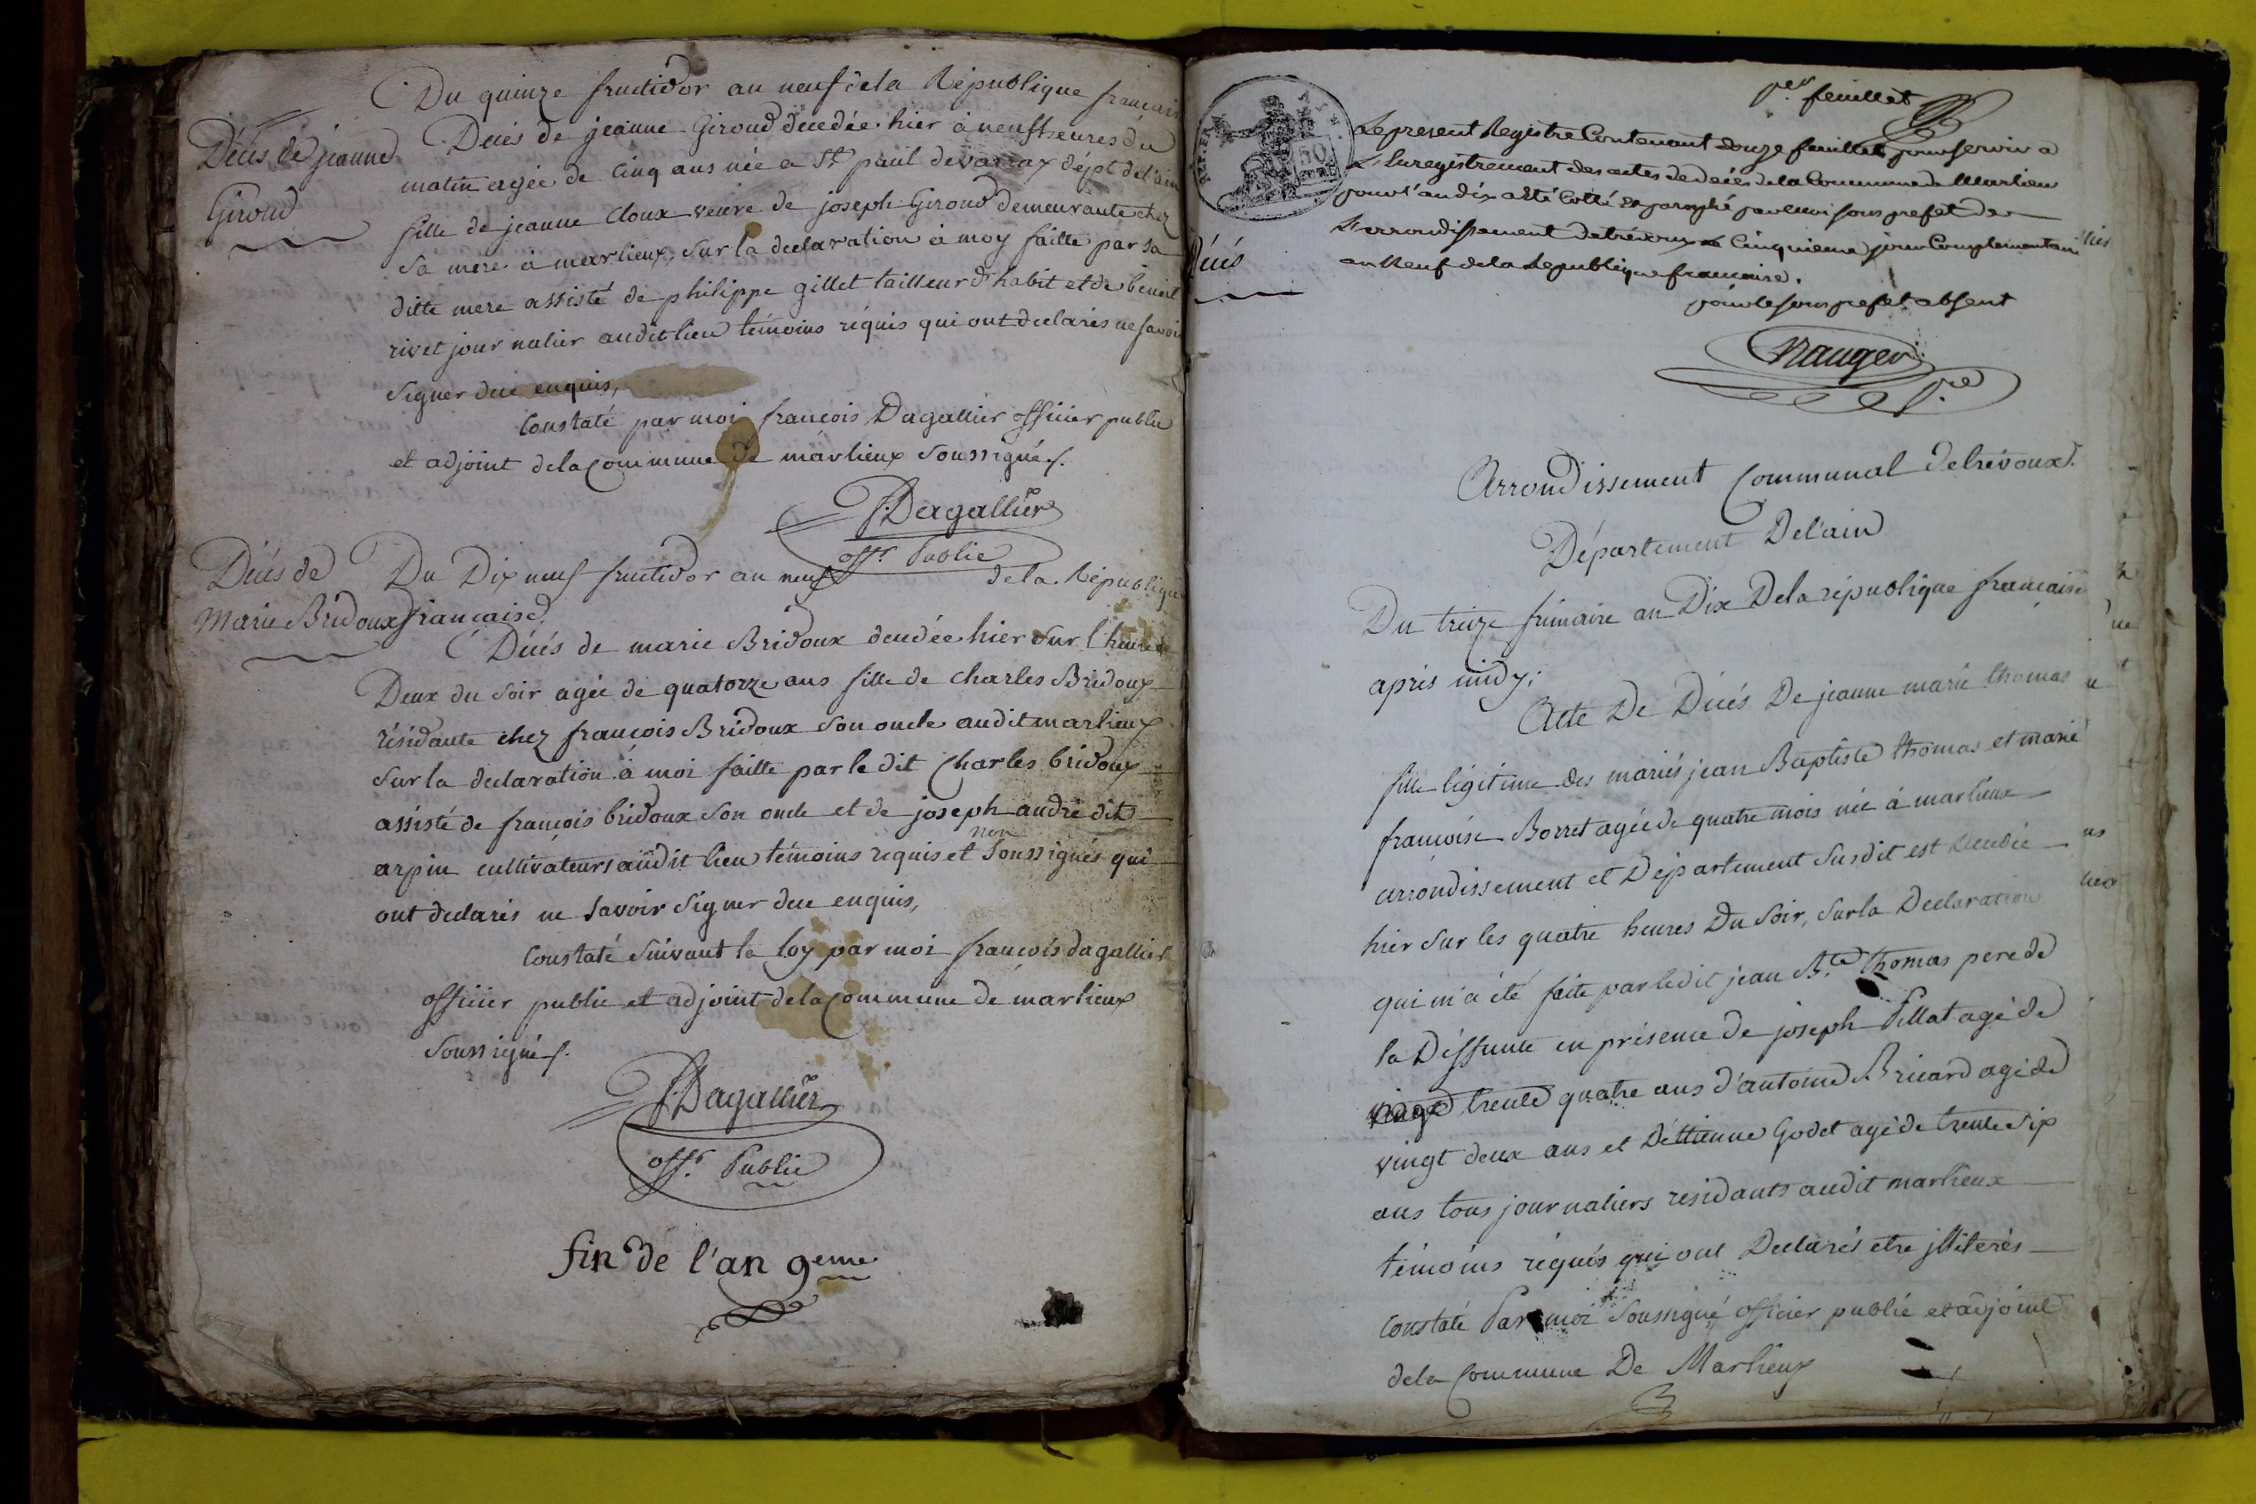 Du quinze fructidor an neuf de la République français
Décés de jeanne
Giroud
Décés de jeanne Giroud décédée hier à neuf heures du
matin agée de cinq ans née a St paul de varax dépt de l'ain
fille de jeanne Cloux veuve de joseph Giroud demeurante chez
sa mere à marlieux, sur la declaration à moy faitte par sa
ditte mere assisté de philippe gillet tailleur d'habit et de benoit
rivet journalier audit lieu témoins réquis qui ont declarés ne savoir
signer de ce enquis,
Constaté par moi françois Dagallier officier public
et adjoint de la Commune de márlieux soussigné.
f. Dagallier
offr. Public
Décés de
Marie Bridoux
Du Dix neuf fructidor an neuf de la République
française
Décés de marie Bridoux decedée hier sur l'heure de
Deux du soir agée de quatorze ans fille de charles Bridoux
résidante chez françois Bridoux son oncle audit marlieux
sur la declaration à moi faitte par le dit Charles bridoux
assisté de françois bridoux son oncle et de joseph andré dit
non
arpin cultivateurs audit lieu témoins réquis et soussignés qui
ont declarés ne savoir signer de ce enquis,
Constaté suivant la loy par moi françois dagallier
officier public et adjoint de la Commune de márlieux
soussigné.
f. Dagallier
offr. Public
fin de l'an 9eme
per feuillet
Le present Registre Contenant douze feuillets pour servir a
L'Enregistrement des actes de decés de la Commune de Marlieu
pour l'an dix a Eté Cotté et paraphé par nous sous prefet de
L'arrondissement de trévoux Le Cinquieme jour Complementaire
an Neuf de la Republique francaise.
pour le sous prefet absent
50
Décés
Arrondissement Communal de trévoux.
Département De l'ain
Du treize frimaire an Dix De la république française
après midy;
Acte De Décés De jeanne marie thomas
fille légitime des mariés jean Baptiste thomas et marie
françoise Borret agée de quatre mois née à marlieux
arrondissement et Département susdit est decedée
hier sur les quatre heures Du soir, sur la Declaration
qui m'a été faite par le dit jean Bte thomas pere de
la Déffunte en présence de joseph Pillat agé de
vingt trente quatre ans d'antoine Bricard agé de
vingt deux ans et D'ettienne Godet agé de trente six
ans tous journaliers residants audit marlieux
témoins réquis qui ont Declarés etre jlliterés
Constaté Par moi soussigné officier public et adjoint
de la Commune De Marlieux